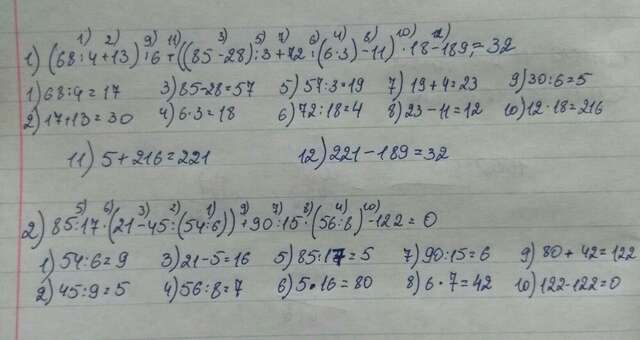 1) 2) 9) 11) 3) 5) 7) 6) 4) 8) 10) 12)
1) (68:4+13):6+((85-28):3+72:(6·3)-11)·18-189=32
1) 68:4=17 3) 85-28=57 5) 57:3=19 7) 19+4=23 9) 30:6=5
2) 17+13=30 4) 6·3=18 6) 72:18=4 8) 23-11=12 10) 12·18=216
11) 5+216=221 12) 221-189=32
5) 6) 3) 2) 1) 9) 7) 8) 4) 10)
2) 85:17·(21-45:(54:6))+90:15·(56:8)-122=0
1) 54:6=9 3) 21-5=16 5) 85:17=5 7) 90:15=6 9) 80+42=122
2) 45:9=5 4) 56:8=7 6) 5·16=80 8) 6·7=42 10) 122-122=0